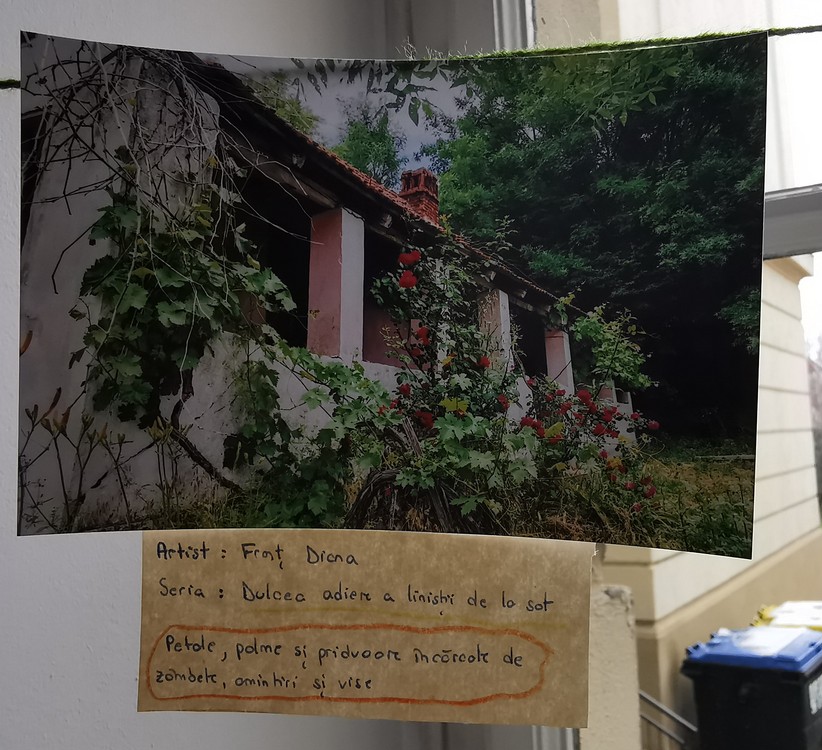 Artist : Franț Diana
Seria : Dulcea adiere a liniștii de la sat
Petale, palme și pridvoare încărcate de
zâmbete, amintiri și vise